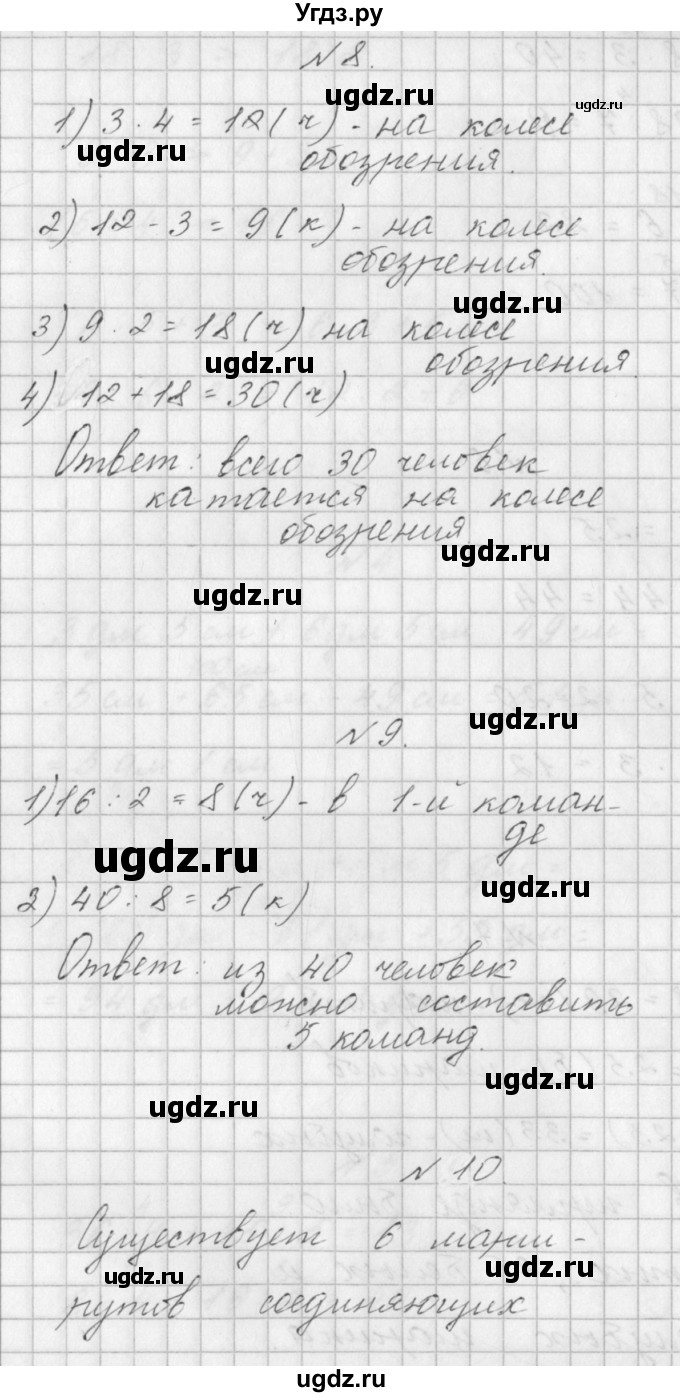 Угдз.ру
N 8.
ugdz.ru
ugdz.ru
1) 3 · 4 = 12 (ч) - на колесе
ugdz.ru
обозрения.
2) 12 - 3 = 9 (к) - на колесе
обозрения.
ugdz.ru
3) 9 · 2 = 18 (ч) на колесе
ugdz.ru
обозрения.
4) 12 + 18 = 30 (ч)
Ответ: всего 30 человек
катается на колесе
обозрения
ugdz.ru
ugdz.ru
N 9.
ugdz.ru
1) 16 : 2 = 8 (ч) - в 1-й коман-
де
ugdz.ru
ugdz.ru
2) 40 : 8 = 5 (к)
Ответ: из 40 человек
можно составить
5 команд.
ugdz.ru
ugdz.ru
N 10.
Существует 6 марш-
ugdz.ru
ugdz.ru
рутов соединяющих
ugdz.ru